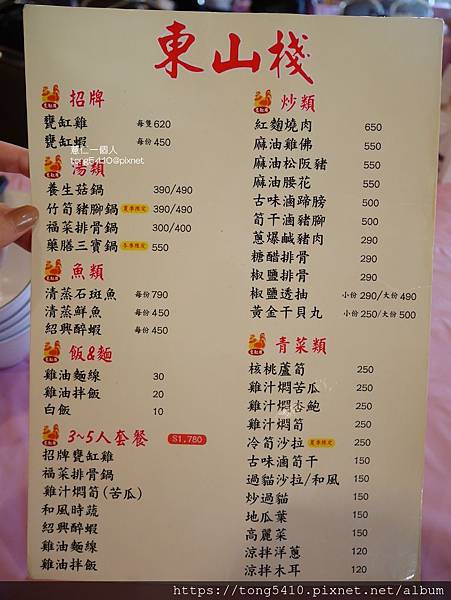 東山棧
招牌
甕缸雞 每隻620
甕缸蝦 每份450
慧仁一個人
tong5410@pixnet
湯類
養生菇鍋 390/490
竹筍豬腳鍋 夏季限定 390/490
福菜排骨鍋 300/400
藥膳三寶鍋 冬季限定 550
魚類
清蒸石斑魚 每份790
清蒸鮮魚 每份450
紹興醉蝦 每份450
飯&麵
雞油麵線 30
雞油拌飯 20
白飯 10
3~5人套餐 $1,780
招牌甕缸雞
福菜排骨鍋
雞汁燜筍(苦瓜)
和風時蔬
紹興醉蝦
雞油麵線
雞油拌飯
炒類
紅麴燒肉 650
麻油雞佛 550
麻油松阪豬 550
麻油腰花 550
古味滷蹄膀 500
筍干滷豬腳 500
蔥爆鹹豬肉 290
糖醋排骨 290
椒鹽排骨 290
椒鹽透抽 小份290/大份490
黃金干貝丸 小份250/大份500
青菜類
核桃蘆筍 250
雞汁燜苦瓜 250
雞汁燜杏鮑 250
雞汁燜筍 250
冷筍沙拉 夏季限定 250
古味滷筍干 150
過貓沙拉/和風 150
炒過貓 150
地瓜葉 150
高麗菜 150
涼拌洋蔥 120
涼拌木耳 120
https://tong5410.pixnet.net/album